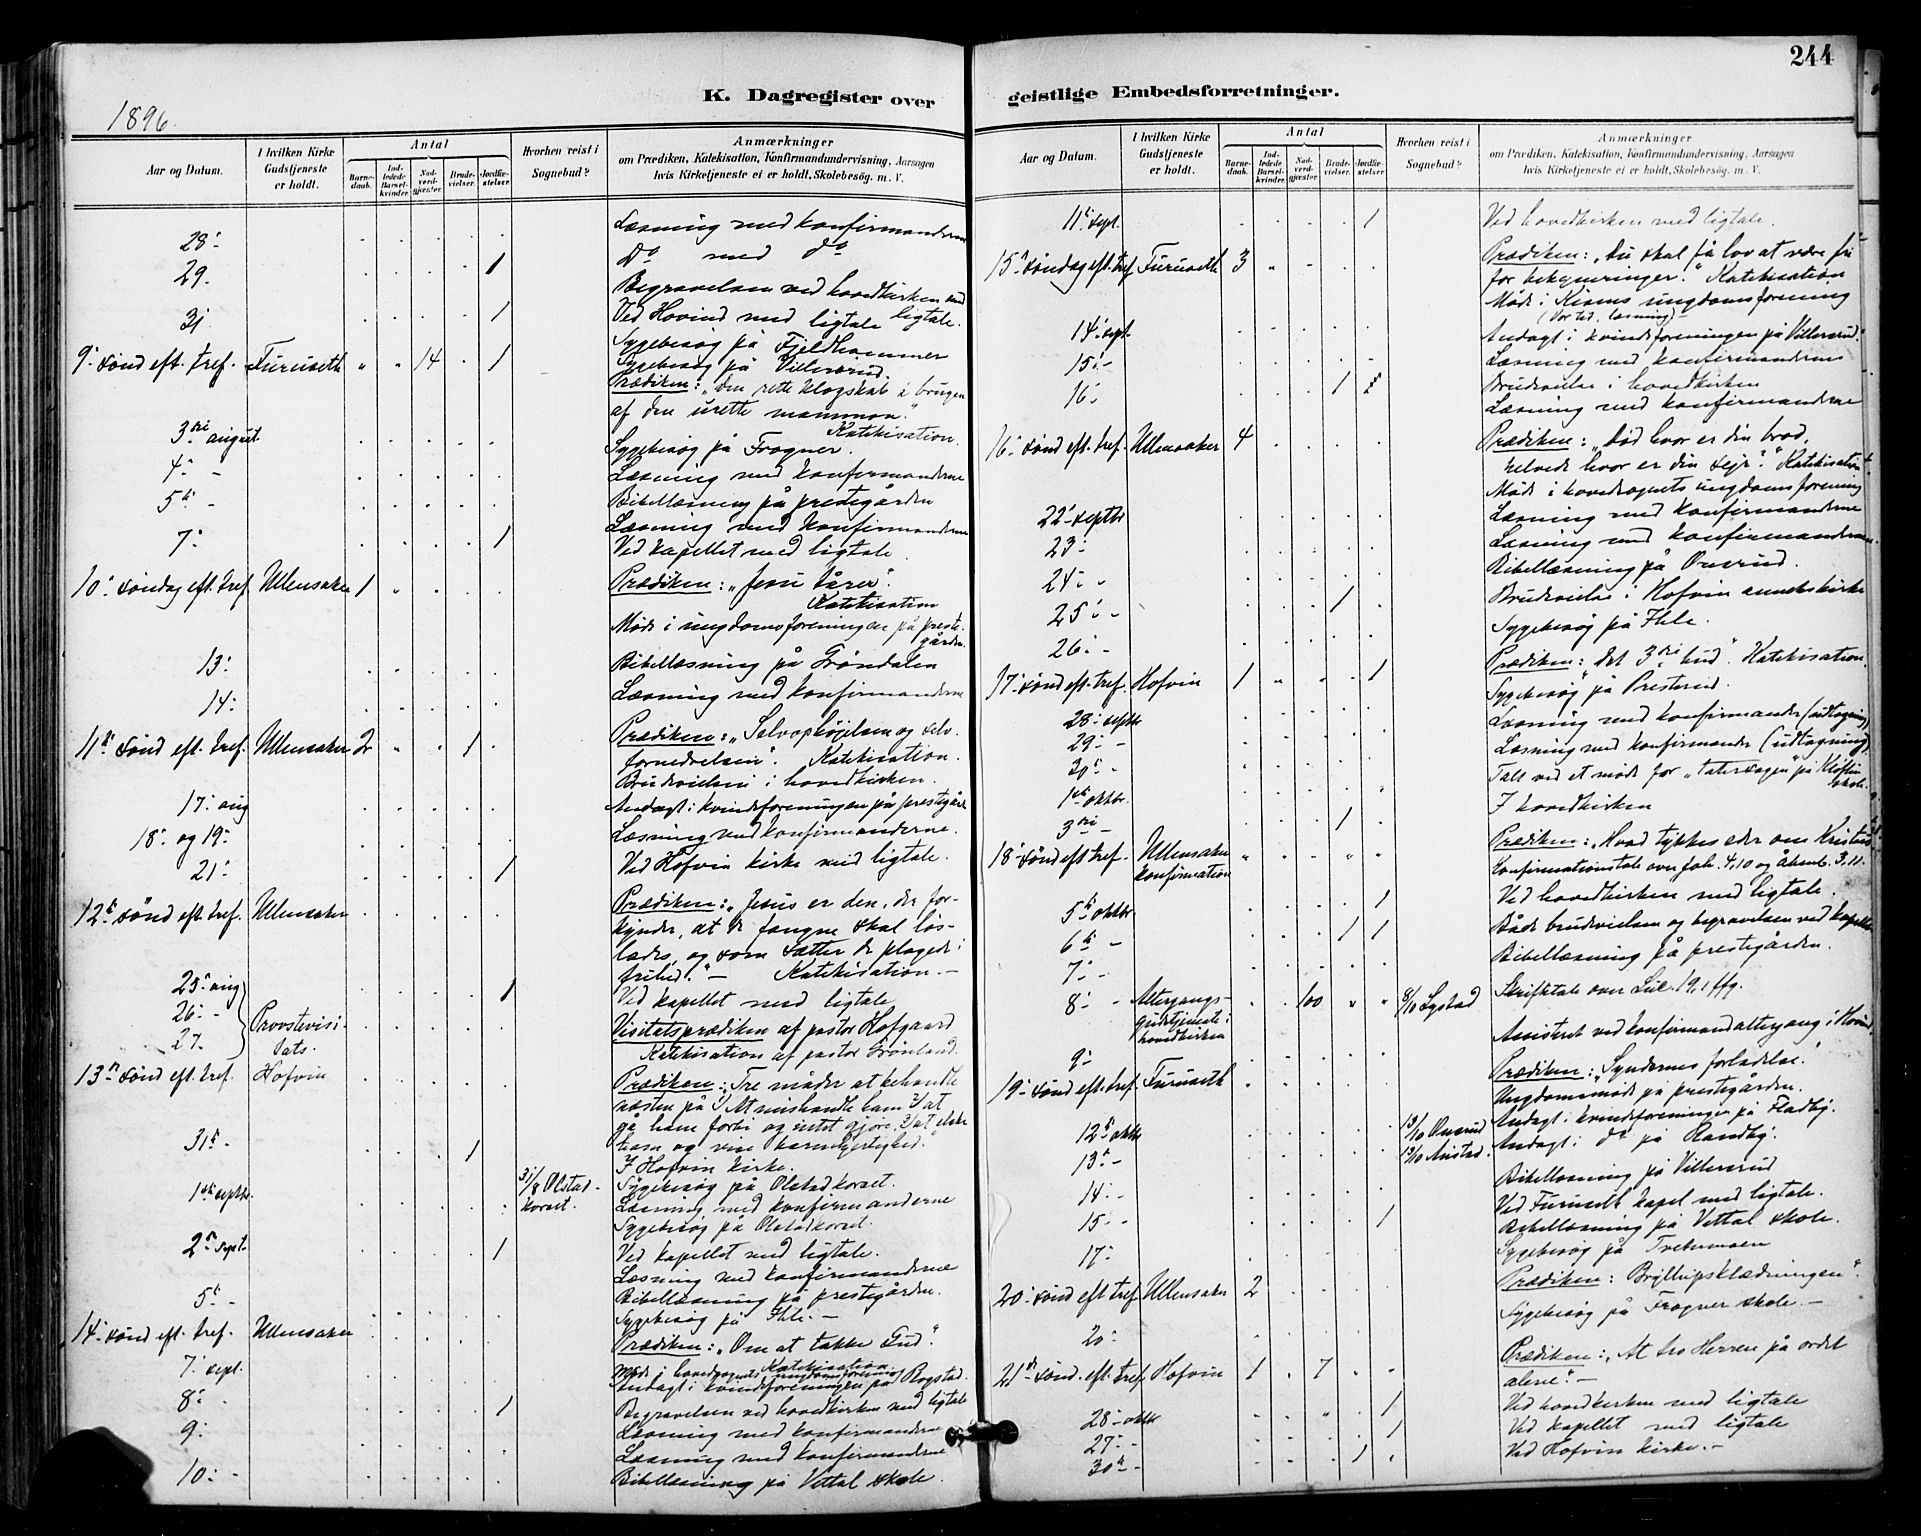 244
K. Dagregister over geistlige Embedsforretninger.
1896.
Aar og Datum.
I hvilken Kirke Gudstjeneste er holdt.
Antal
Barnedaab.
Indledede Barselkvinder.
Nadverdgjæster.
Brudevielser.
Jordfæstelser
Hvorhen reist i Sognebud?
Anmærkninger
om Prædiken, Katekisation, Konfirmandundervisning, Aarsagen
hvis Kirketjeneste ei er holdt, Skolebesøg. m. V.
Læsning med konfirmanderne
28. Do med do
29. 1 Begravelsen ved hovedkirken med ligtale.
31 1 Ved Hovind med ligtale
Sygebesøg på Fjeldhammer
9. sønd eft. tref. Furuseth " " 14 1 Sygebesøg på Villersrud.
Prædiken: „Den rette klogskab i brugen
af den urette mammon."
Katekisation.
3die august. Sygebesøg på Frogner.
4. - Læsning med konfirmanderne
5te - Bibellæsning på prestegården
Læsning med konfirmanderne
7. 1 Ved kapellet med ligtale
10. søndag eft. tref. Ullensaker 1 " Prædiken: „Jesu tårer".
Katekisation
Møde i ungdomsforeningen på prestegården
13. Bibellæsning på Grøndalen
14. Læsning med konfirmanderne
11te sønd eft. tref. Ullensaker 2 " " 1 Prædiken: „Selvophøjelsen og selvfornedrelsen".
Katekisation.
Brudvielsen i hovedkirken.
17. aug Andagt i kvindeforeningen på prestegård
18. og 19. Læsning med konfirmanderne.
21. 1 Ved Hofvin kirke med ligtale.
12te sønd eft. tref. Ullensaker Prædiken: „Jesus er den, der forkynder, at de fangne skal løslades, og som sætter de plagede i
frihed." — Katekisation. —
25. aug 1 Ved kapellet med ligtale
26. - Provstevisitats. Visitatsprædiken af pastor Hofgaard
27. Katekisation af pastor Grønland.
13de sønd eft. tref. Hofvin Prædiken: „Tre måder at behandle
næsten på 1) At mishandle ham 2) at
gå ham forbi og intet gjøre 3) at elske
ham og vise barmhjertighed."
31te - 1 I Hofvin kirke.
31/8 Olstadkorset. Sygebesøg på Olstadkorset.
1ste septbr. Læsning med konfirmanderne
Sygebesøg på Olstadkorset.
2. sept. 1 Ved kapellet med ligtale.
Læsning med konfirmanderne
5te - Bibellæsning på prestegården.
Sygebesøg på Ihle. —
14. sønd eft. tref. Ullensaker Prædiken: „Om at takke Gud".
Katekisation.
Møde i hovedsognets ungdomsforening
7. sept. Andagt i kvindeforeningen på Rogstad.
8. - 1 Begravelsen ved hovedkirken med ligtale
9. Læsning med konfirmanderne
Læsning med konfirmanderne
10. - Bibellæsning på Vittal skole.
Aar og Datum.
I hvilken Kirke Gudstjeneste er holdt.
Antal
Barnedaab.
Indledede Barselkvinder.
Nadverdgjæster.
Brudevielser.
Jordfæstelser
Hvorhen reist i Sognebud?
Anmærkninger
om Prædiken, Katekisation, Konfirmandundervisning, Aarsagen
hvis Kirketjeneste ei er holdt, Skolebesøg. m. V.
11te sept. 1 Ved hovedkirken med ligtale
15. søndag eft. tref Furuseth 3 " Prædiken: „Du skal få lov at være fri
for bekymringer." Katekisation.
Møde i ungdomsforening
(Vor tid, læsning)
14. sept. Andagt i kvindeforeningen på Villersrud.
15. - Læsning med konfirmanderne
16. 1 Brudvielse i hovedkirken
Læsning med konfirmanderne
16. sønd eft. tref. Ullensaker 4 Prædiken: „Død hvor er din brod,
helvede hvor er din sejr?" Katekisation.
Møde i hovedsognets ungdomsforening
22. septbr Læsning med konfirmanderne
23. Læsning med konfirmanderne.
24. - Bibellæsning på Onsrud
25. - 1 Brudvielse i Hofvin annekskirke
26. - Sygebesøg på Ihle.
17. sønd eft. tref. Hofvin 1 " " 1 Prædiken: „det 3die bud". Katekisation.
Sygebesøg på Presterud.
28. septbr Læsning med konfirmander (udtagning)
29. - Læsning med konfirmander (udtagning)
30te - Tale ved et møde for „tatersagen" på Kløften skole.
1ste oktbr.
3die - 1 I hovedkirken
18. sønd eft tref. Ullensaker konfirmation " " " Prædiken: „Hvad tykkes eder om Kristus
Konfirmationstale over Joh. 4,10 og Åbenb. 3,11.
5te oktbr 1 Ved hovedkirken med ligtale.
6te - 1 1 Både brudvielsen og begravelsen ved kapellet
7. - Bibellæsning på prestegården.
8. - Altergangsgudstjeneste i hovedkirken 100 " " 8/10 Lystad Skriftetale over Luk. 19,1 ffg.
9. Assisteret ved konfirmandaltergang i Hovind
19. sønd eft. tref. Furuseth Prædiken: „Syndernes forladelse."
Ungdomsmøde på prestegården.
12te oktbr 13/10 Onsrud Andagt i kvindeforeningen på Fladby.
13. - 13/10 Anstad. Andagt i do på Randby.
14. - Bibellæsning på Villersrud
15. - 1 Ved Furuseth kapel med ligtale.
Bibellæsning på Vittal skole.
17. Sygebesøg på
20. sønd eft tref Ullensaker 2 Prædiken: Bryllupsklædningen".
20. Sygebesøg på Frogner skole. —
21de sønd. eft. tref Hofvin 1 7 " Prædiken: „At tro Herren på ordet
alene". —
28. oktbr " 1 Ved hovedkirken med ligtale
29. - 1 Ved kapellet med ligtale
30te - 1 Ved Hofvin kirke. —